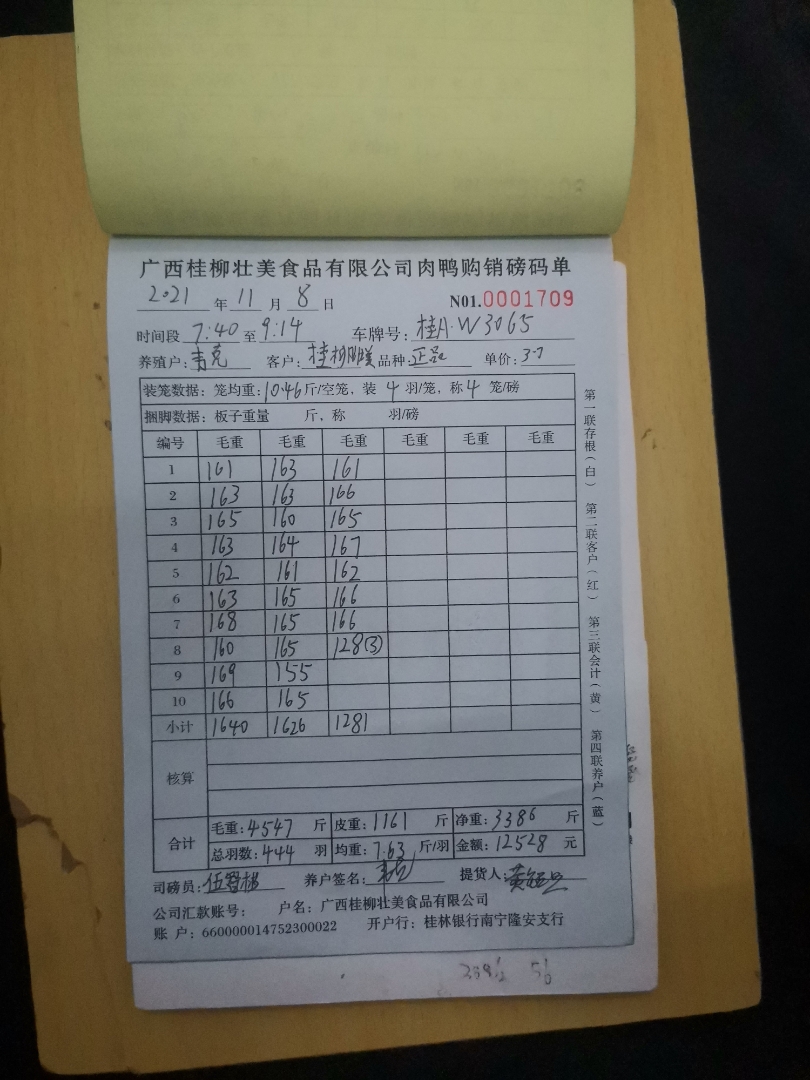 广西桂柳壮美食品有限公司肉鸭购销磅码单
2021 年 11 月 8 日 N01.0001709
时间段 7:40 至 9:14 车牌号: 桂A·W3065
养殖户: 韦克 客户: 桂柳壮美 品种: 正品 单价: 3.7
装笼数据: 笼均重: 10.46 斤/空笼, 装 4 羽/笼, 称 4 笼/磅
捆脚数据: 板子重量 斤, 称 羽/磅
编号 毛重 毛重 毛重 毛重 毛重 毛重
1 161 163 161
2 163 163 166
3 165 160 165
4 163 164 167
5 162 161 162
6 163 165 166
7 168 165 166
8 160 165 128(3)
9 169 155
10 166 165
小计 1640 1626 1281
核算
合计
毛重: 4547 斤 皮重: 1161 斤 净重: 3386 斤
总羽数: 444 羽 均重: 7.63 斤/羽 金额: 12528 元
司磅员: 养户签名: 韦克 提货人:
公司汇款账号: 户名: 广西桂柳壮美食品有限公司
账 户: 660000014752300022 开户行: 桂林银行南宁隆安支行
第一联存根(白) 第二联客户(红) 第三联会计(黄) 第四联养户(蓝)